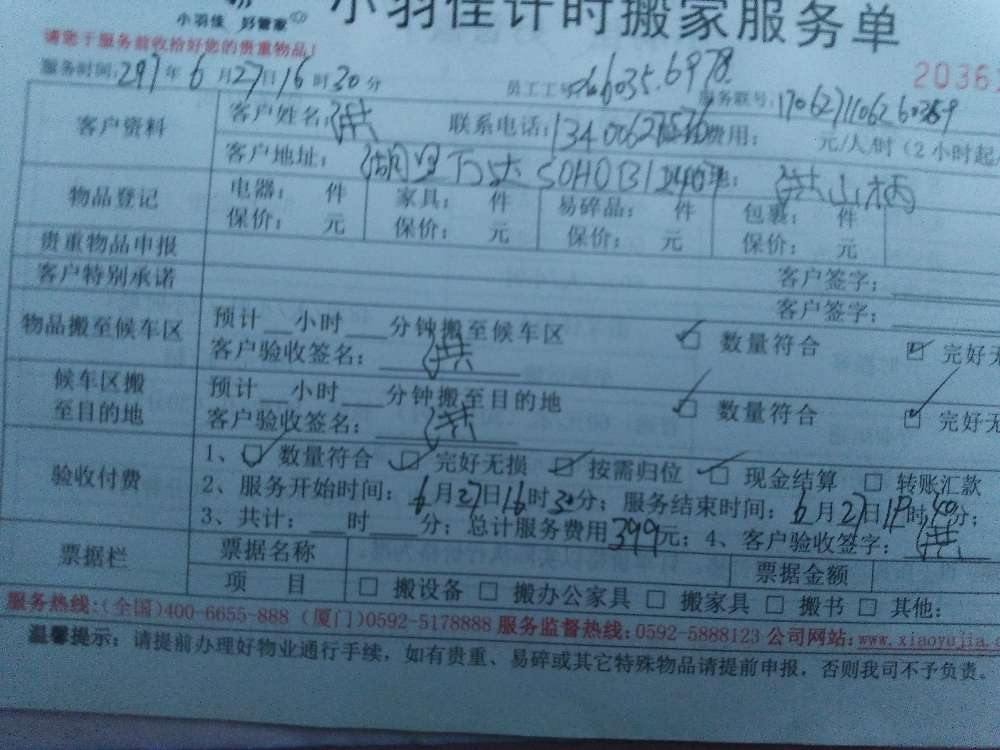 小羽佳 好管家
小羽佳计时搬家服务单
请您于服务前收拾好您的贵重物品!
2036
服务时间:2017年6月27日16时30分 员工工号: 6035.6978 服务联号:
客户资料 客户姓名:洪 联系电话: 费用: 元/人/时(2小时起
客户地址: 湖里万达SOHOB1 洪山柄
物品登记 电器: 件 家具: 件 易碎品: 件 包裹: 件
保价: 元 保价: 元 保价: 元 保价: 元
贵重物品申报 客户签字:
客户特别承诺 客户签字:
物品搬至候车区 预计__小时___分钟搬至候车区 ☑ 数量符合 ☑ 完好无
客户验收签名:洪
候车区搬至目的地 预计__小时___分钟搬至目的地 ☑ 数量符合 ☑ 完好无
客户验收签名:洪
验收付费 1、☑ 数量符合 ☑ 完好无损 ☑ 按需归位 ☑ 现金结算 □ 转账汇款
2、服务开始时间:6月27日16时30分;服务结束时间:6月27日19时40分;
3、共计:___时___分;总计服务费用399元;4、客户验收签字:洪
票据栏 票据名称 票据金额
项 目 □ 搬设备 □ 搬办公家具 □ 搬家具 □ 搬书 □ 其他:
服务热线:(全国)400-6655-888 (厦门)0592-5178888 服务监督热线:0592-5888123 公司网站:www.xiaoyujia.c
温馨提示:请提前办理好物业通行手续,如有贵重、易碎或其它特殊物品请提前申报,否则我司不予负责。